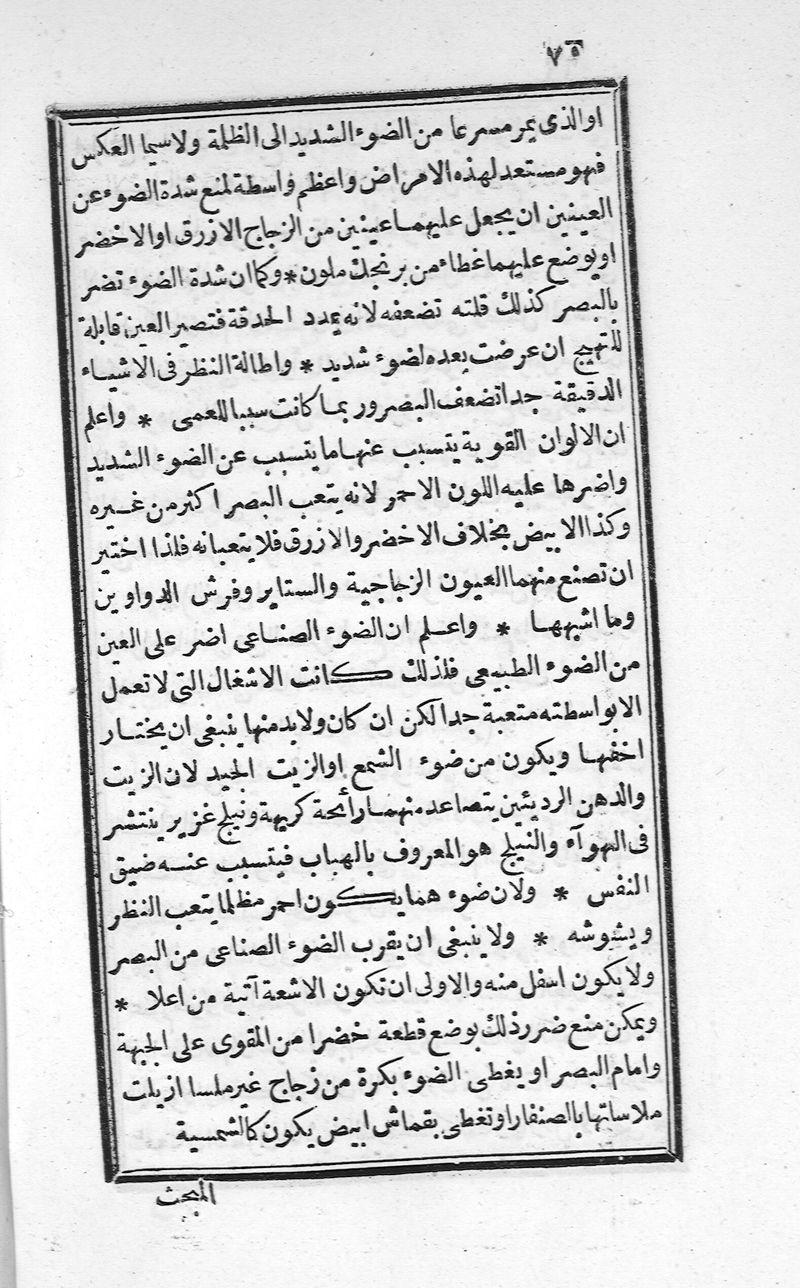 ٧٥
او الذى يمر مسرعا من الضوء الشديد الى الظلمة ولاسيما العكس
فهو مستعد لهذه الامراض واعظم واسطة لمنع شدة الضوء عن
العينين ان يجعل عليهما عينين من الزجاج الازرق او الاخضر
او يوضع عليهما غطاء من برنجك ملون * وكما ان شدة الضوء تضر
بالبصر كذلك قلته تضعفه لانه يمدد الحدقة فتصير العين قابلة
للتهيج ان عرضت بعده لضوء شديد * واطالة النظر فى الاشياء
الدقيقة جدا تضعف البصر وربما كانت سببا للعمى * واعلم
ان الالوان القوية يتسبب عنها ما يتسبب عن الضوء الشديد
واضرها عليه اللون الاحمر لانه يتعب البصر اكثر من غيره
وكذا الابيض بخلاف الاخضر والازرق فلا يتعبانه فلذا اختير
ان تصنع منهما العيون الزجاجية والستاير وفرش الدواوين
وما اشبهها * واعلم ان الضوء الصناعى اضر على العين
من الضوء الطبيعى فلذلك كانت الاشغال التى لا تعمل
الا بواسطته متعبة جدا لكن ان كان ولابد منها ينبغى ان يختار
اخفها ويكون من ضوء الشمع او الزيت الجيد لان الزيت
والدهن الرديئين يتصاعد منهما رائحة كريهة ونيلج غزير ينتشر
فى الهوآء والنيلج هو المعروف بالهباب فيتسبب عنه ضيق
النفس * ولان ضوءهما يكون احمر مظلما يتعب النظر
ويشوشه * ولا ينبغى ان يقرب الضوء الصناعى من البصر
ولا يكون اسفل منه والاولى ان تكون الاشعة آتية من اعلا *
ويمكن منع ضرر ذلك بوضع قطعة خضرا من المقوى على الجبهة
وامام البصر او يغطى الضوء بكرة من زجاج غير ملسا ازيلت
ملاستها بالصنفار او تغطى بقماش ابيض يكون كالشمسية
المبحث